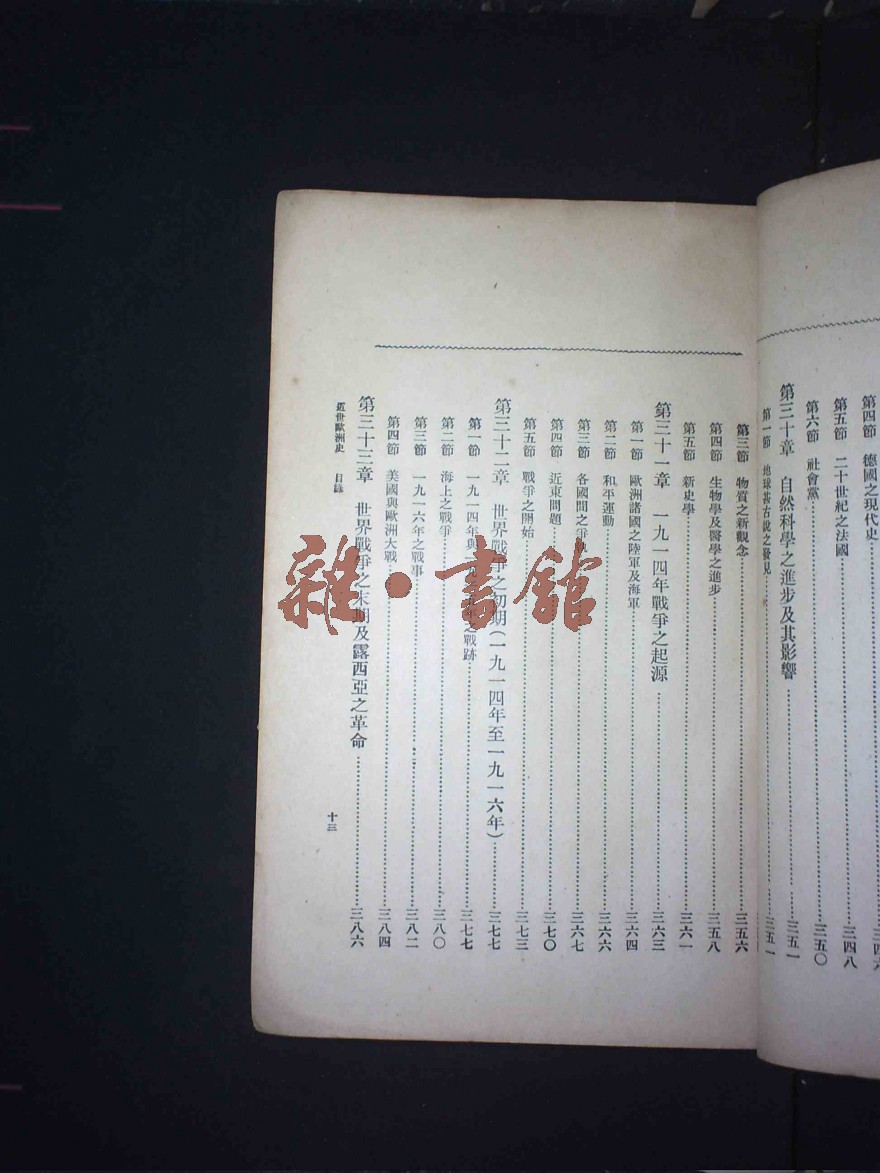 第四節 德國之現代史 三四六
第五節 二十世紀之法國 三四八
第六節 社會黨 三五〇
第三十章 自然科學之進步及其影響 三五一
第一節 地球甚古說之發見 三五一
第三節 物質之新觀念 三五六
第四節 生物學及醫學之進步 三五八
第五節 新史學 三六一
第三十一章 一九一四年戰爭之起源 三六三
第一節 歐洲諸國之陸軍及海軍 三六四
第二節 和平運動 三六六
第三節 各國間之爭 三六七
第四節 近東問題 三七〇
第五節 戰爭之開始 三七三
第三十二章 世界戰爭之初期(一九一四年至一九一六年) 三七七
第一節 一九一四年與一九一五年之戰跡 三七七
第二節 海上之戰爭 三八〇
第三節 一九一六年之戰事 三八二
第四節 美國與歐洲大戰 三八四
第三十三章 世界戰爭之末期及露西亞之革命 三八六
近世歐洲史 目錄
十三
雜·書館